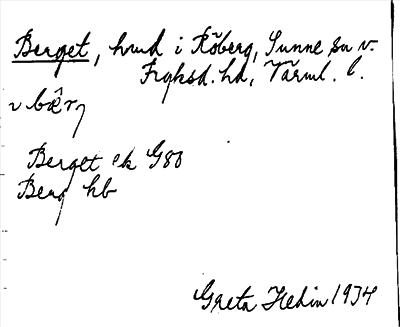 Berget, hmd i Röberg, Sunne sn v.
Fryksd. hd, Värml. l.
v bær
Berget ek G80
Berg hb
Greta Hedin 1934